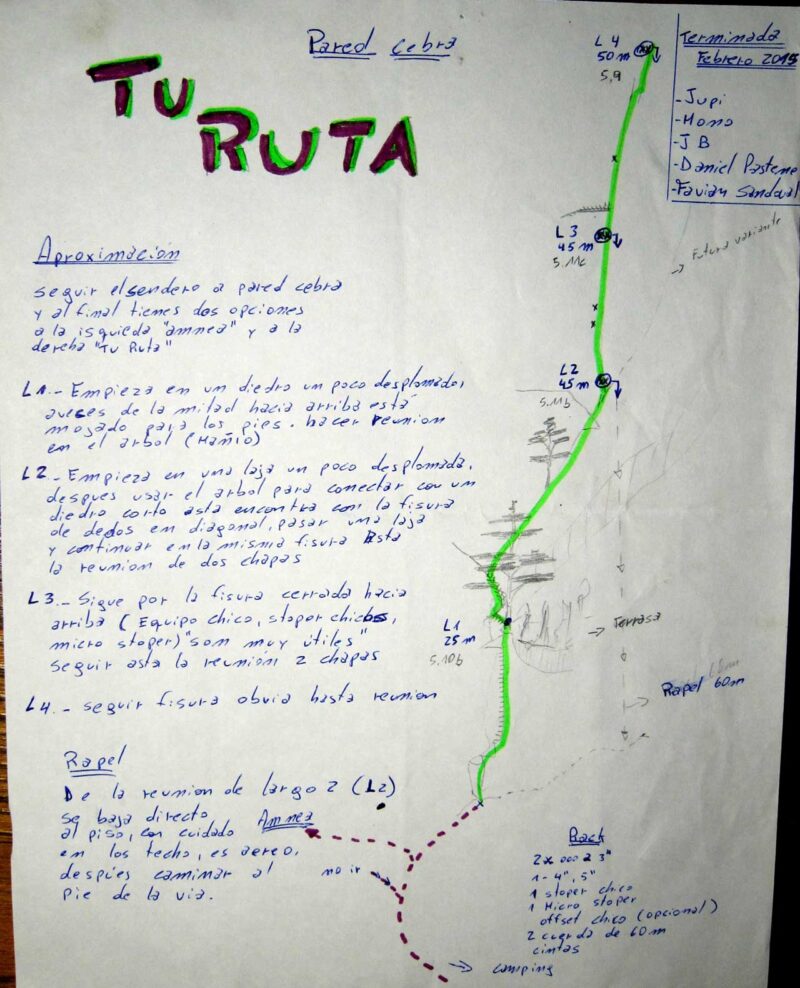 Pared Cebra
TU RUTA
Terminada
Febrero 2015
- Jupi
- Mono
- J B
- Daniel Pastene
- Favian Sandoval
Aproximacion
seguir el sendero a pared cebra
y al final tienes dos opciones
a la isquieda "amnea" y a la
derecha "Tu Ruta"
L1.- Empieza en un diedro un poco desplomado,
aveces de la mitad hacia arriba está
mojado para los pies. hacer reunion
en el arbol (Mañio)
L2.- Empieza en una laja un poco desplomada,
despues usar el arbol para conectar con un
diedro corto asta encontra con la fisura
de dedos en diagonal, pasar una laja
y continuar en la misma fisura asta
la reunion de dos chapas
L3.- Sigue por la fisura cerrada hacia
arriba (Equipo chico, stoper chicos,
micro stoper) "son muy útiles"
seguir asta la reunión 2 chapas
L4.- seguir fisura obvia hasta reunion
Rapel
De la reunion de largo 2 (L2)
se baja directo
al piso, con cuidado
en los techo, es aereo.
despúes caminar al
pie de la via.
L 4
50 m
5,9
L 3
45 m
5.11c
Futura variante
L2
45 m
5.11b
L1
25 m
5.10b
Terrasa
Rapel 60m
Amnea
no ir
camping
Rack
2x 000 a 3"
1- 4", 5"
1 stoper chico
1 Micro stoper
offset chico (opcional)
2 cuerda de 60m
cintas